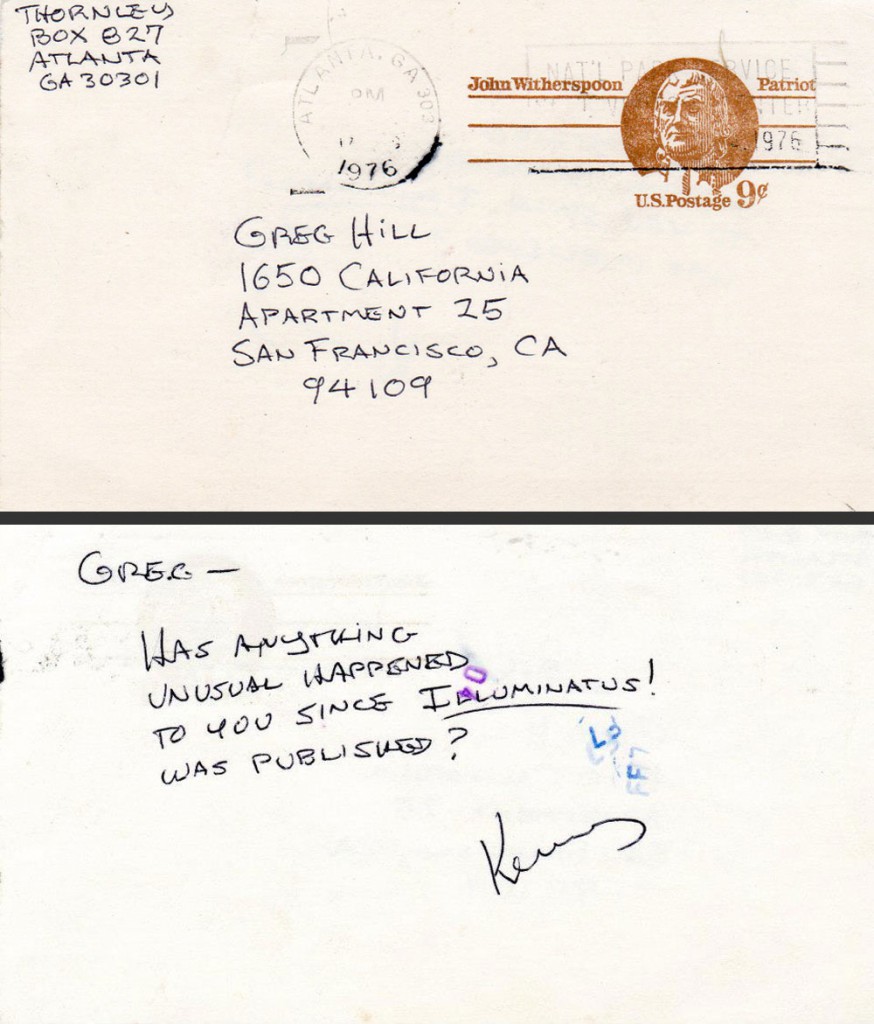 THORNLEY
BOX 827
ATLANTA
GA 30301
ATLANTA, GA 303
PM
1976
NAT'L PARK SERVICE
1976
John Witherspoon Patriot
U.S. Postage 9¢
GREG HILL
1650 CALIFORNIA
APARTMENT 25
SAN FRANCISCO, CA
94109
GREG —
HAS ANYTHING
UNUSUAL HAPPENED
TO YOU SINCE ILLUMINATUS!
WAS PUBLISHED?
Kerry